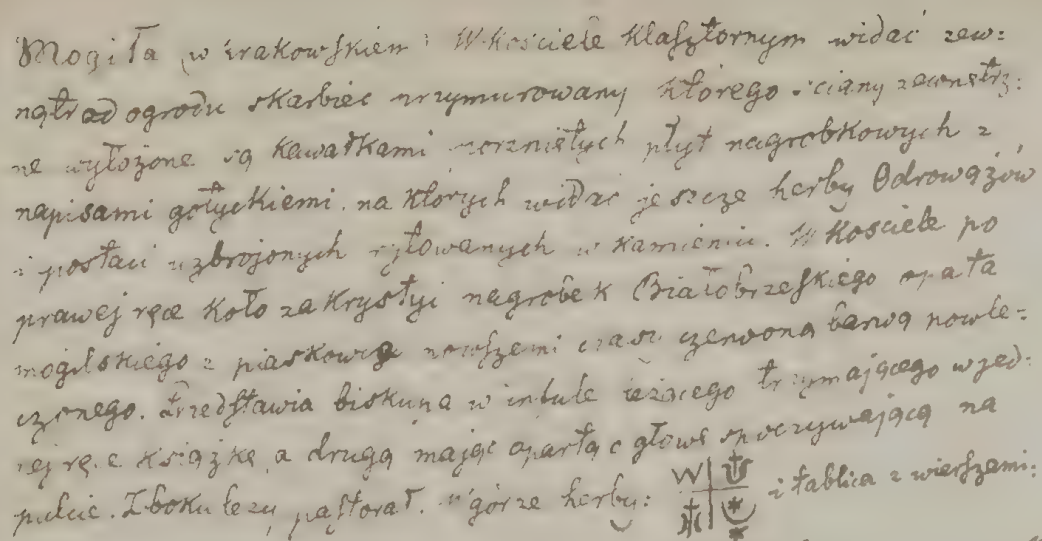 Mogiła w krakowskiem: W kościele klasztornym widać zew=
nątrz od ogrodu skarbiec przymurowany którego ściany zewnętrz=
ne wyłożone są kawałkami porzniętych płyt nagrobkowych z
napisami gotyckiemi. na których widać jeszcze herby Odrowążów
i postaci uzbrojonych rytowanych w kamieniu. W kościele po
prawej ręce koło zakrystyi nagrobek Białobrzeskiego opata
mogilskiego z piaskowca nowszemi czasy czerwoną barwą powle=
czonego. Przedstawia biskupa w infule leżącego trzymającego w jed=
nej ręce książkę, a drugą mając opartą o głowę spoczywającą na
pulcie. Z boku leży pastorał. W górze herby: W i tablica z wierszami: